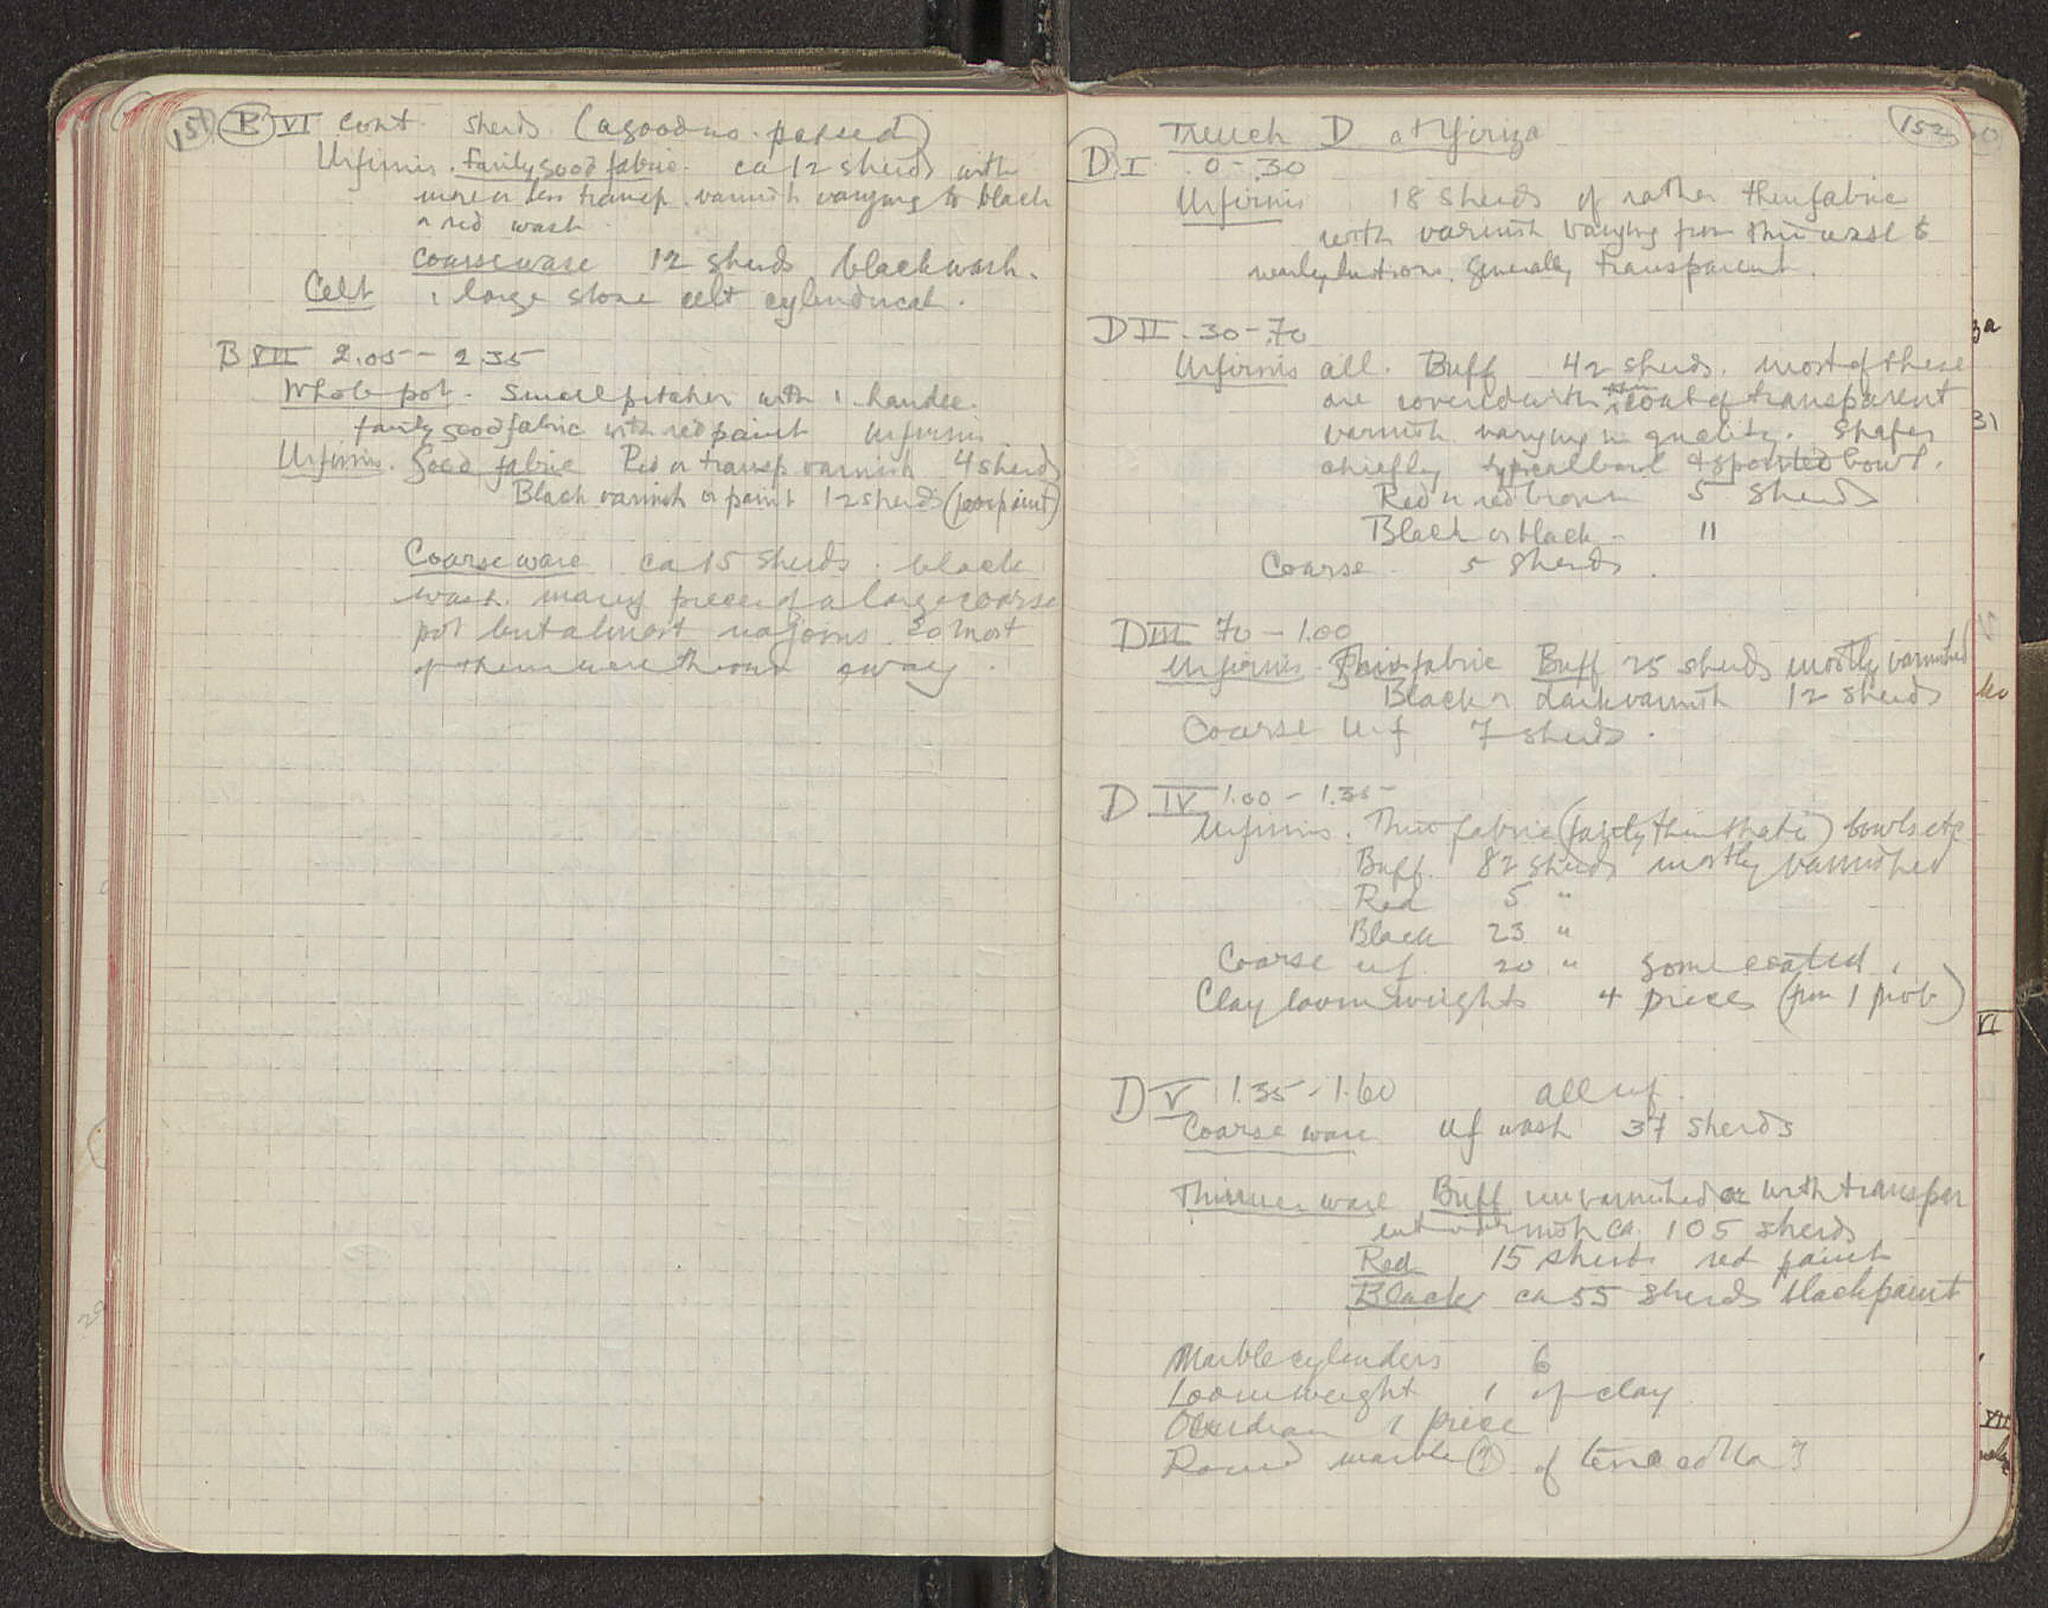 151 B VI cont sherds (a good no. passed)
Urfirnis. Fairly good fabric. ca 12 sherds with
more or less transp. varnish varying to black
or red wash
Coarse ware 12 sherds black wash.
Celt 1 large stone celt cylindrical.
B VII 2.05 - 2.35
Whole pot. Small pitcher with 1 handle.
fairly good fabric with red paint Urfirnis
Urfirnis. Good fabric Red or transp varnish 4 sherds
Black varnish or paint 12 sherds (poor paint)
Coarse ware ca 15 sherds. black
wash. many pieces of a large coarse
pot but almost no joins so most
of them were thrown away.
152
Trench D at Yiriza
D I 0 - .30
Urfirnis 18 sherds of rather thin fabric
with varnish varying from thin wash to
nearly lustrous. generally transparent.
D II .30 - .70
Urfirnis all. Buff 42 sherds. most of these
are covered with thin coat of transparent
varnish varying in quality. Shapes
chiefly typical bowl & spouted bowl.
Red or red brown 5 sherds
Black or black - 11
Coarse. 5 sherds.
D III 70 - 1.00
Urfirnis fabric Buff 25 sherds mostly varnished
Black or dark varnish 12 sherds
Coarse Urf 7 sherds.
D IV 1.00 - 1.35
Urfirnis. Thin fabric (fairly thin that is) bowls etc
Buff. 82 sherds mostly varnished
Red 5 "
Black 23 "
Coarse uf. 20 " some coated.
Clay loom weights 4 pieces (from 1 prob)
D V 1.35 - 1.60 all uf.
Coarse ware uf wash 37 sherds
Thinner ware Buff unvarnished or with transpar
ent varnish ca. 105 sherds
Red 15 sherds red paint
Black ca 55 sherds black paint
Marble cylinders 6
Loomweight 1 of clay
Obsidian 1 piece
Round marble (?) of terra cotta?
3a
31
VI
VII